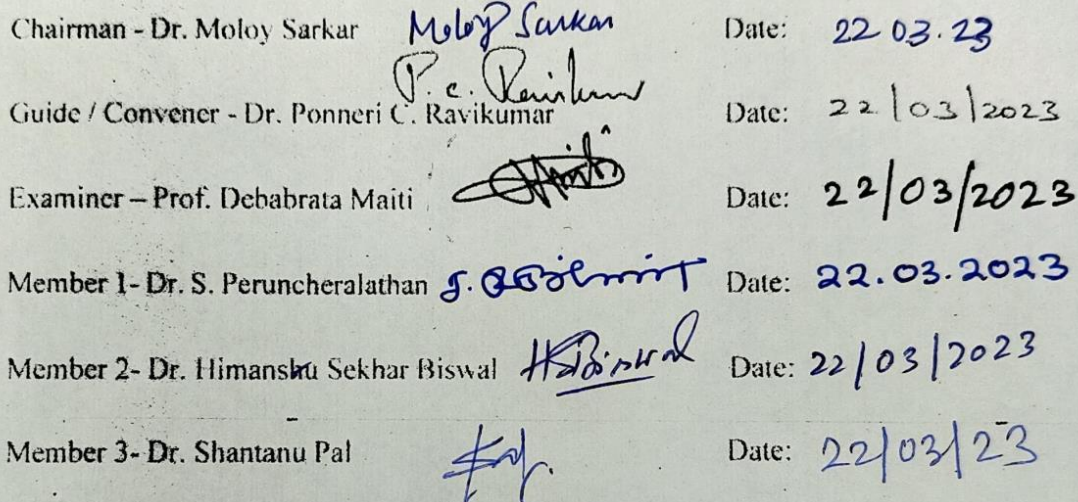 Chairman - Dr. Moloy Sarkar Moloy Sarkar Date: 22 03.23
P. C. Ravikumar
Guide / Convener - Dr. Ponneri C. Ravikumar Date: 22/03/2023
Examiner – Prof. Debabrata Maiti Date: 22/03/2023
Member 1- Dr. S. Peruncheralathan Date: 22.03.2023
Member 2- Dr. Himanshu Sekhar Biswal HSBiswal Date: 22/03/2023
Member 3- Dr. Shantanu Pal Date: 22/03/23